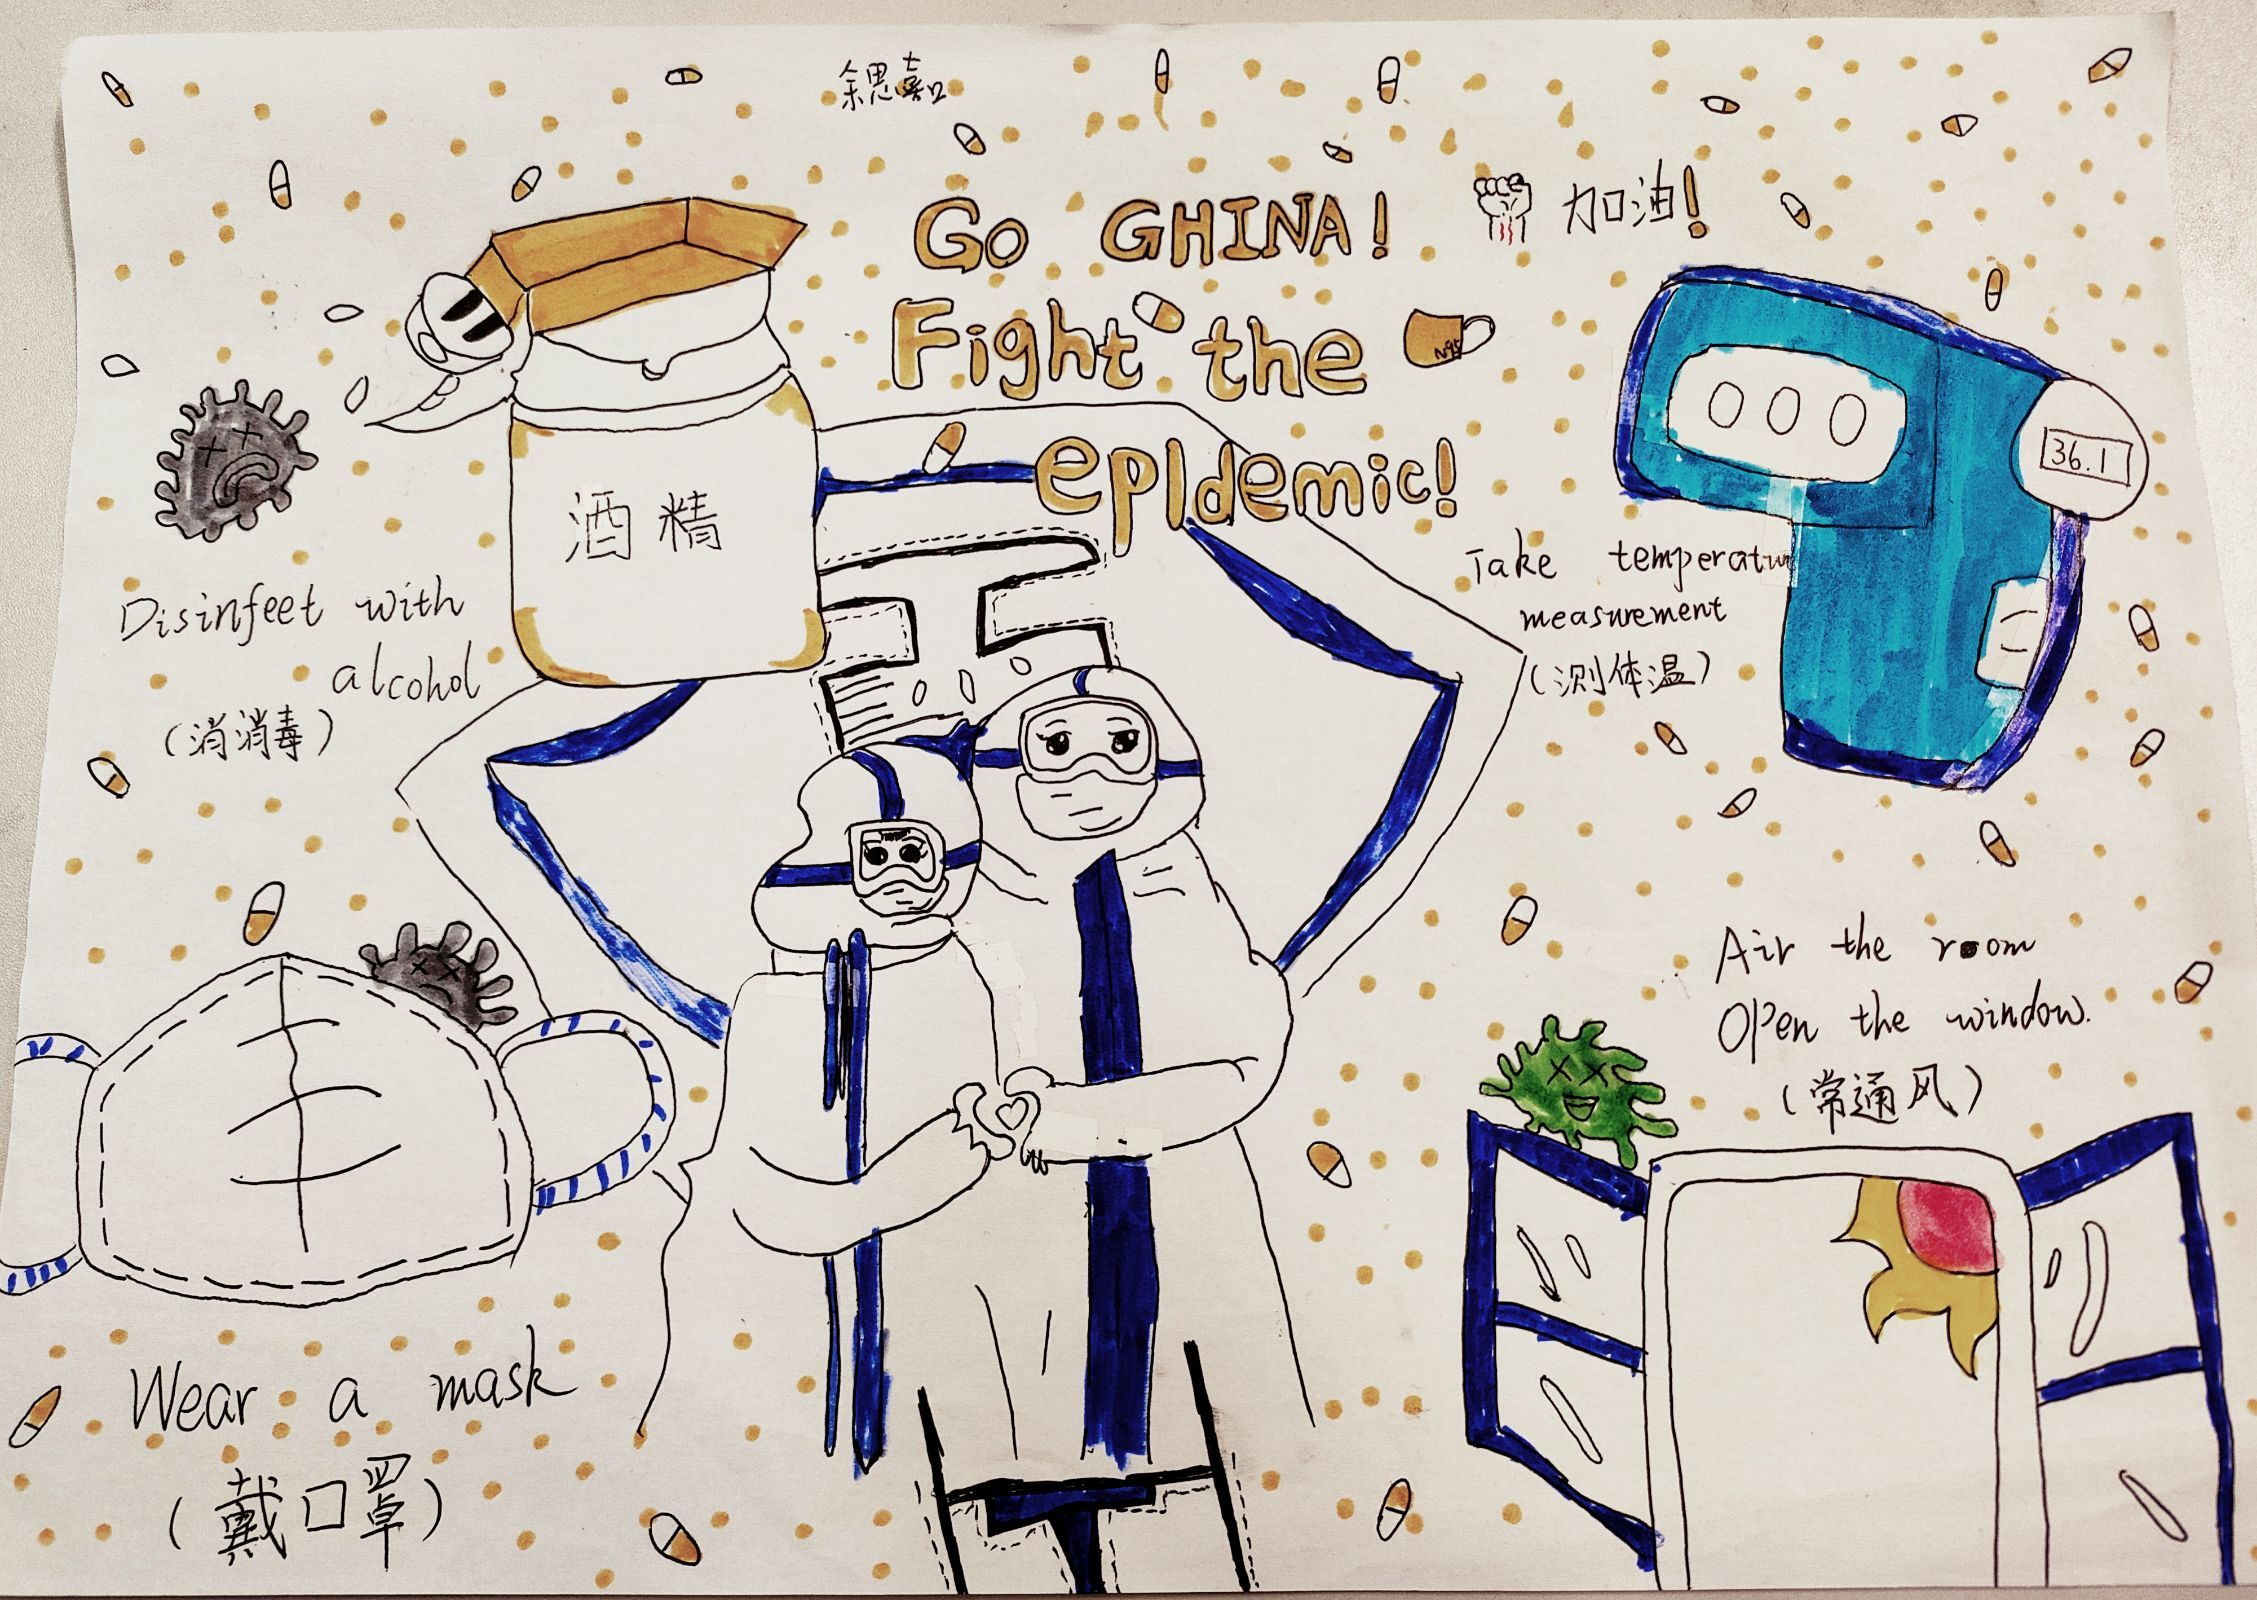 余思嘉
Go GHINA!
加油!
Fight the
N95
epIdemic!
36.1
酒精
Disinfeet with
alcohol
(消消毒)
Take temperatu
measurement
(测体温)
Air the room
Open the window.
(常通风)
Wear a mask
(戴口罩)